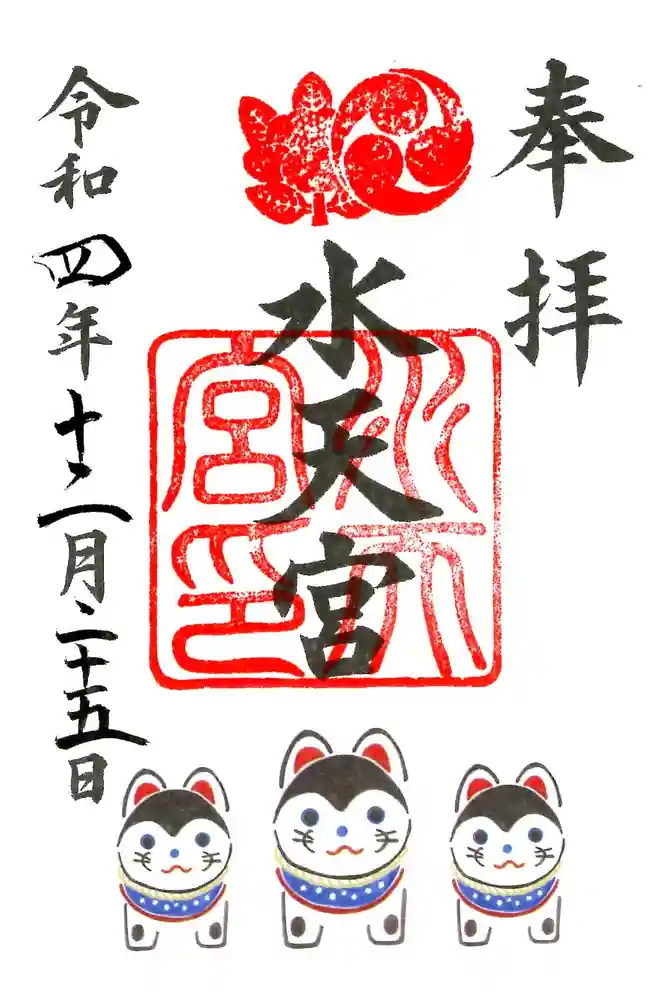 奉拝
水天宮
水天
宮印
令和四年十二月二十五日